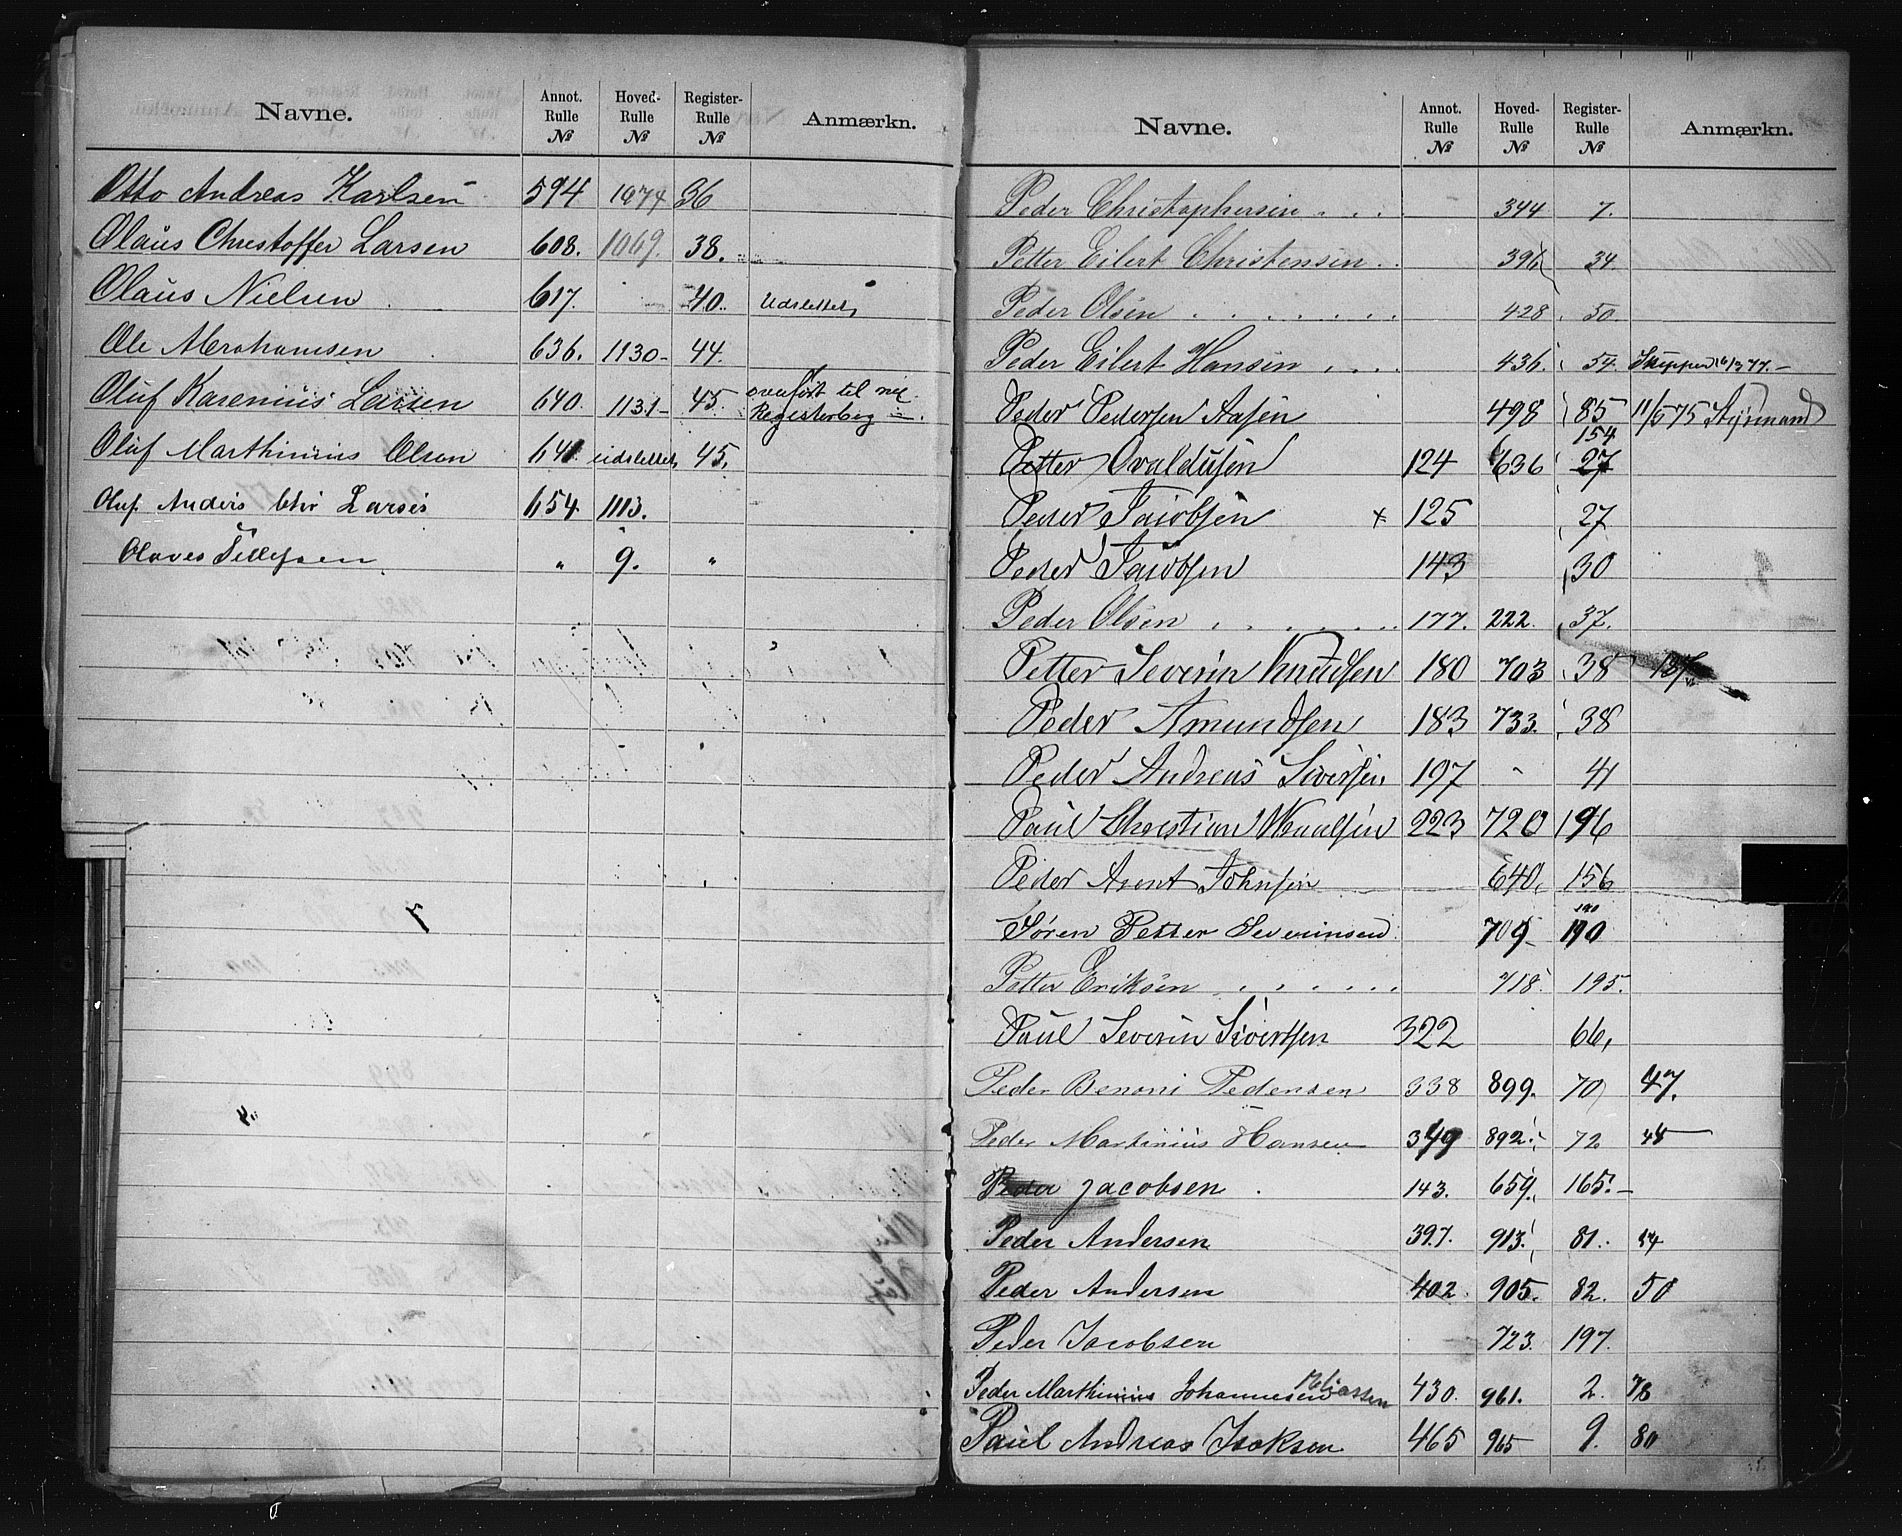 Navne. Annot. Rulle № Hoved- Rulle № Register- Rulle № Anmærkn.
Otto Andreas Karlsen 594 1074 36
Olaus Chrestoffer Larsen 608. 1069. 38.
Olaus Nielsen 617. 40. Udslettet
Ole Abrahamsen 636. 1130- 44.
Oluf Karenius Larsen 640. 1131- 45. overført til
Registerbog
Oluf Marthinius Olsen 641 udslettet 45.
Oluf Anders Chr Larsen 654 1113.
Olaves Tellefsen " 9. "
Navne. Annot. Rulle № Hoved- Rulle № Register- Rulle № Anmærkn.
Peder Christophersen . . . 344 7.
Petter Eilert Christensen . . 396 34.
Peder Olsen . . . . . . . 428 50.
Peder Eilert Hansen . . . . 436. 54. Skipper 77.-
Peder Pedersen Aasen 498 85 11/5 75 Styrmand
154
Petter Ovaldusen 124 636 27
Peder Jacobsen × 125 27
Peder Jacobsen 143 30
Peder Olsen . . . . . . . 177. 222. 37.
Petter Severin Knudsen 180 703 38
Peder Amundsen 183 733. 38
Peder Andreas Sivertsen 197 - 41
Paul Christian Knudsen 223 720 196
Peder Arent Johnsen 640. 156
Søren Petter Severinsen 709- 190
Petter Eriksen . . . . . . 718. 195.
Paul Severin Sivertsen 322 66.
Peder Benoni Pedersen 338 899. 70 47.
Peder Martinius Hansen 349 892. 72 48
Peder Jacobsen . 143. 659. 165.-
Peder Andersen 397. 913. 81.
Peder Andersen 402. 905. 82. 50
Peder Jacobsen 723. 197.
Peder Marthinius Johannesen Eliassen 430. 961. 2. 78
Paul Andreas Isaksen 465 965 9. 80